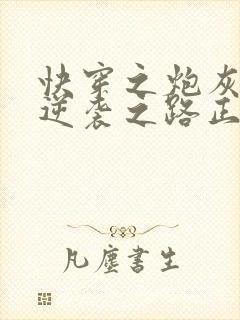 快穿之炮灰
逆袭之路正
凡塵書生